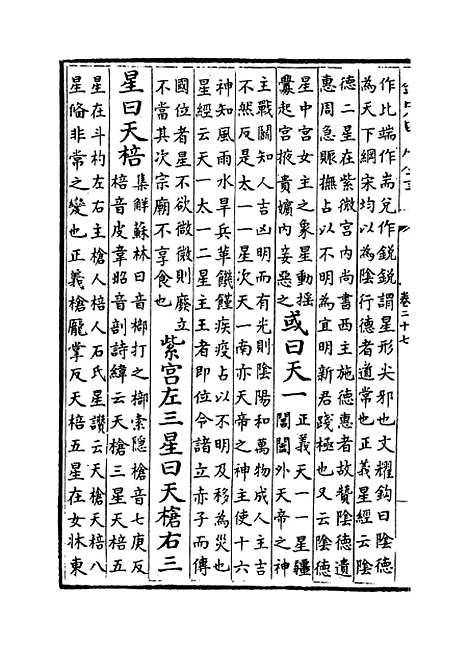 卷二十七
作比端作耑兊作鋭鋭謂星形尖邪也文耀鈎曰陰德
為天下綱宋均以為陰行德者道常也正義星經云陰
德二星在紫微宫内尚書西主施德惠者故贊陰德遺
惠周急賑撫占以不明為宜明新君踐極也又云陰德
星中宫女主之象星動揺
釁起宫掖貴嬪内妾惡之
或曰天一
正義天一一星疆
閶闔外天帝之神
主戰鬭知人吉凶明而有光則陰陽和萬物成人主吉
不然反是太一一星次天一南亦天帝之神主使十六
神知風雨水旱兵革饑饉疾疫占以不明及移為災也
星經云天一太一二星主王者即位令諸立赤子而傳
國位者星不欲微微則廢立
不當其次宗廟不享食也
紫宫左三星曰天槍右三
星曰天棓
集解蘇林曰音榔打之榔索隠槍音七庚反
棓音皮韋昭音剖詩緯云天槍三星天棓五
星在斗杓左右主槍人棓人石氏星讚云天槍天棓八
星備非常之變也正義槍龎掌反天棓五星在女牀東